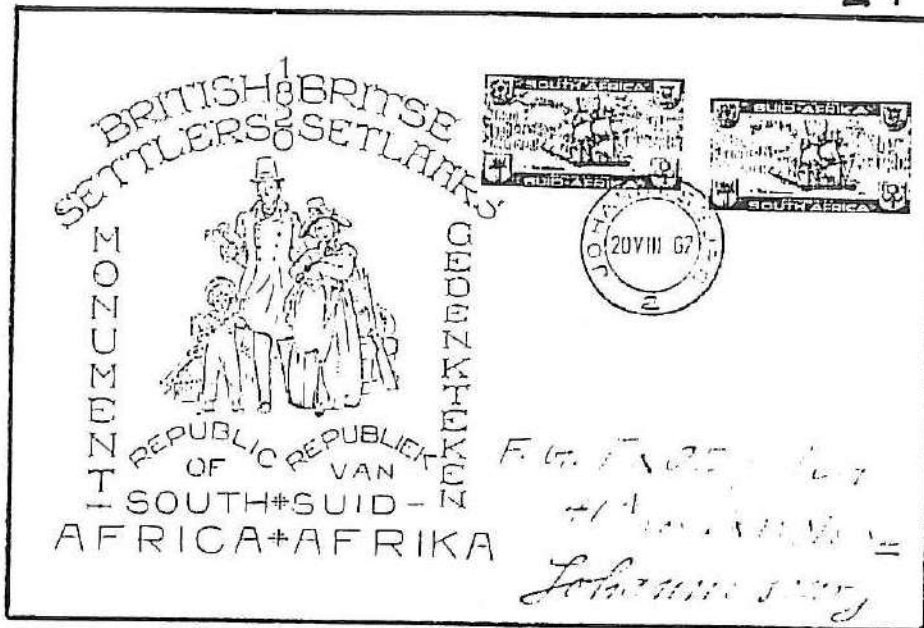 BRITISH 1820 BRITSE
SETTLERS SETLAARS
MONUMENT
GEDENKTEKEN
REPUBLIC REPUBLIEK
OF VAN
- SOUTH * SUID -
AFRICA * AFRIKA
SOUTH AFRICA
SUID-AFRIKA
SUID-AFRIKA
SOUTH AFRICA
JOHANNESBURG
20 VIII 62
2
Johannesburg